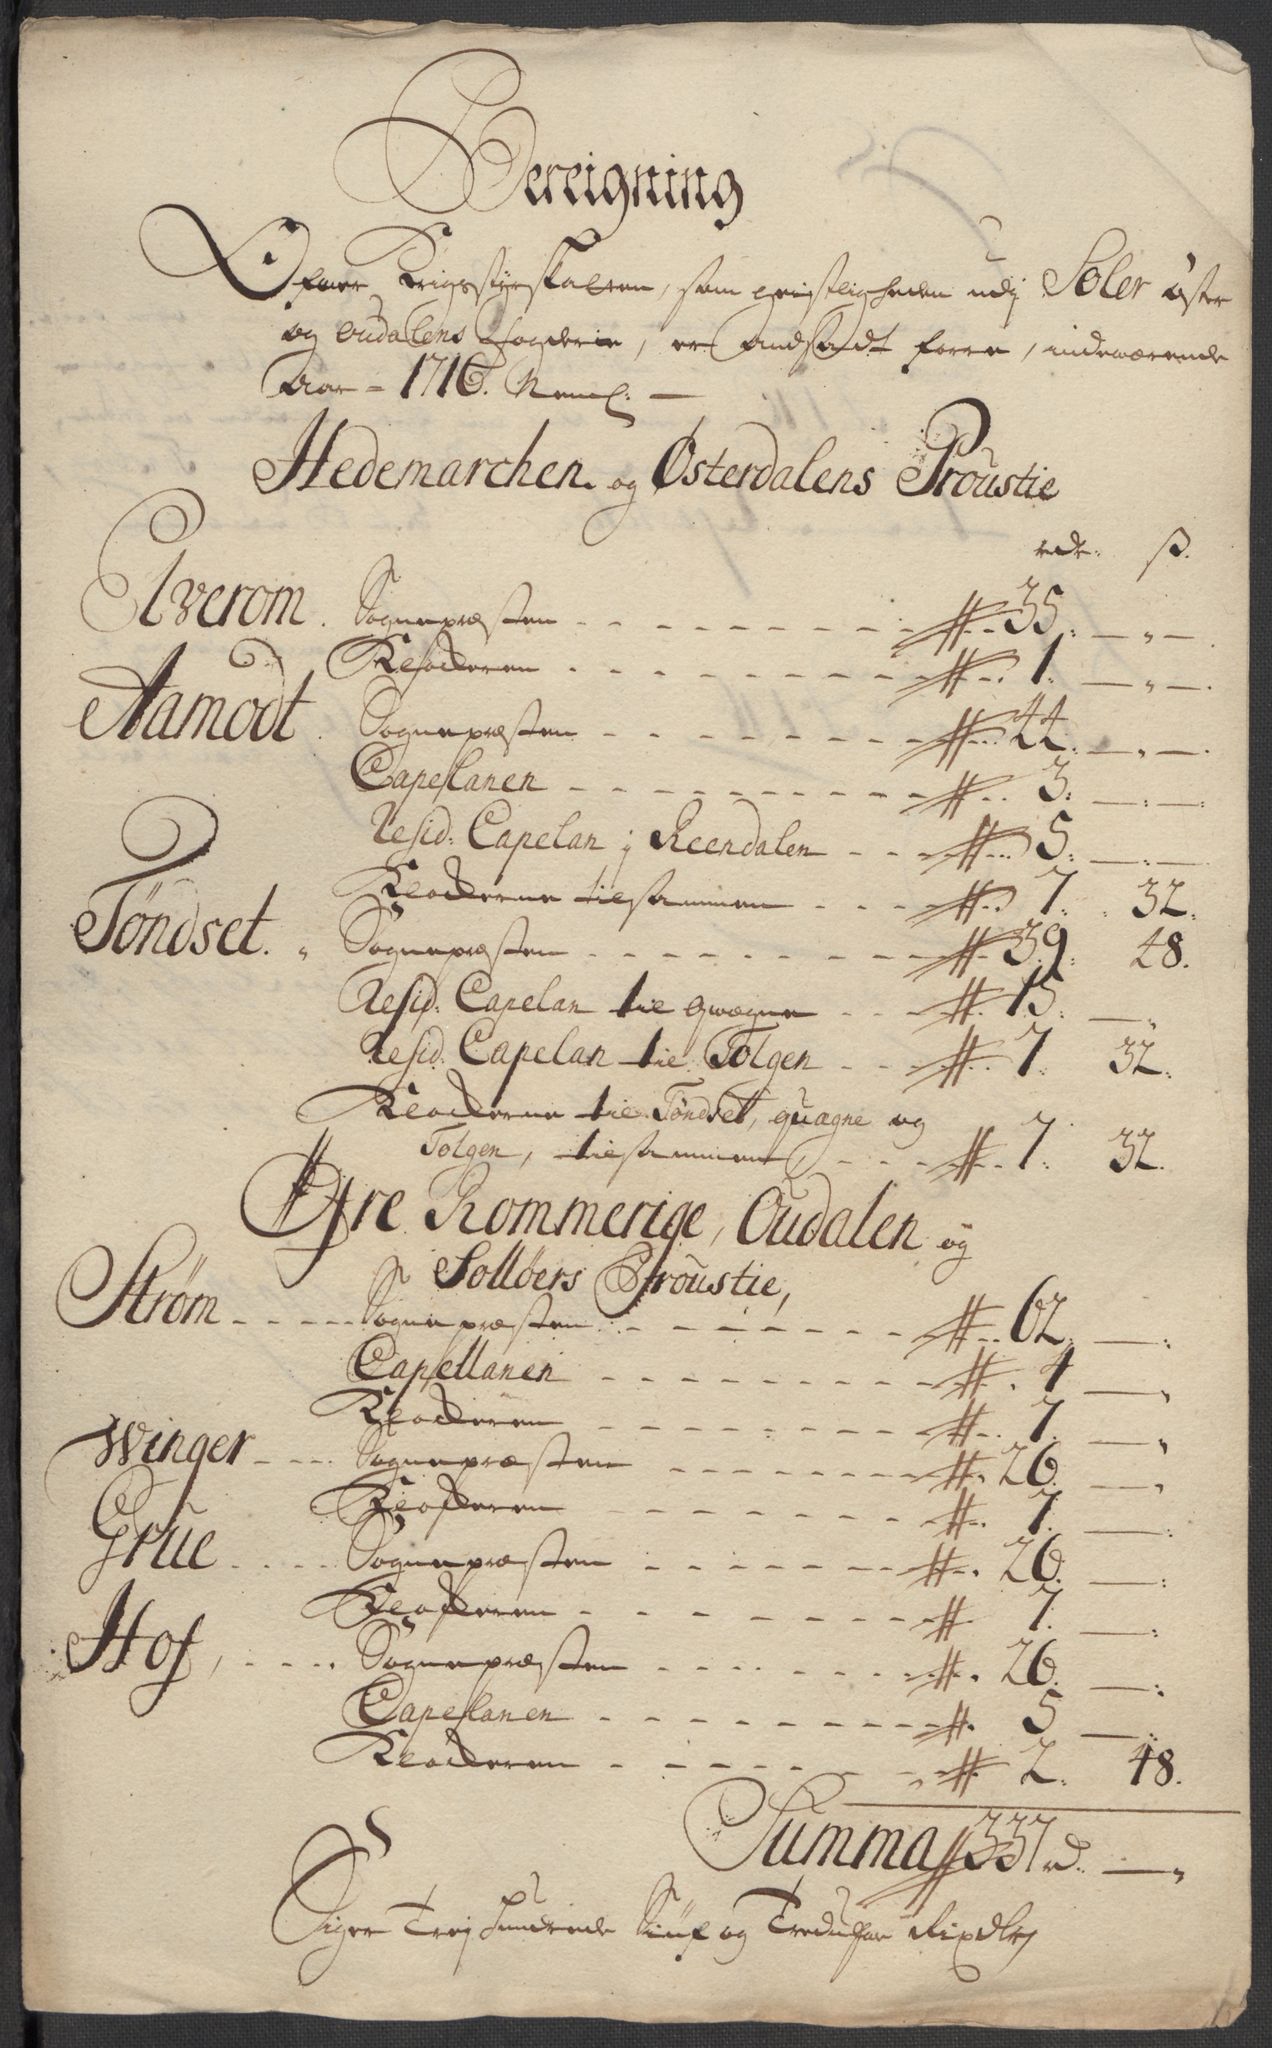 Bereigning
Ofwer Krigsstyrskatten, som geistligheden udj Soler öster
og oudalens fogderie, er Andsadt forre, indewærende
Aar - 1716. Neml: —
Hedemarchen og Østerdalens Proustie
rdr: ß.
Elverom. Sognepræsten - - - - - - - - - # 35. — „ —
Klockeren - - - - - - - - - # 1. — „ —
Aamodt. Sognepræsten - - - - - - - - # 44. — „ —
Capellanen - - - - - - - - - # 3. — . —
Resid: Capelan j Reendalen - - - # 5. — . —
Klockerne tilsammen - - - # 7. 32.
Töndset. „ Sognepræsten - - - - - - - - # 39. 48.
Resid: Capelan til qwægne - - # 15. — „
Resid. Capelan til Tolgen - - - # 7. 32.
Klockerne til Töndset, quægne og
Tolgen, tilsammen - - - # 7. 32.
Øfre Rommerige, Oudalen og
Sollöers Proustie,
Ström - - - - - Sognepræsten - - - - - - - # 62. — .
Capellanen - - - - - - - - # 4 — „
Klockeren - - - - - - - - # 7. — „
Winger - - - - Sognepræsten - - - - - - - # 26. — „
Klockeren - - - - - - - # 7. — .
Grue - - - - - Sognepræsten - - - - - - - # 26. — :
Klockeren - - - - - - - - # 7. — :
Hof, - - - - - Sognepræsten - - - - - - - # 26. — :
Capellanen - - - - - - - - - # 5 — „
Klockeren - - - - - - - - # 2. 48.
Summa # 337 rd. — „
Siger Trej hundrede Siuf og Tredufve Rixdlr